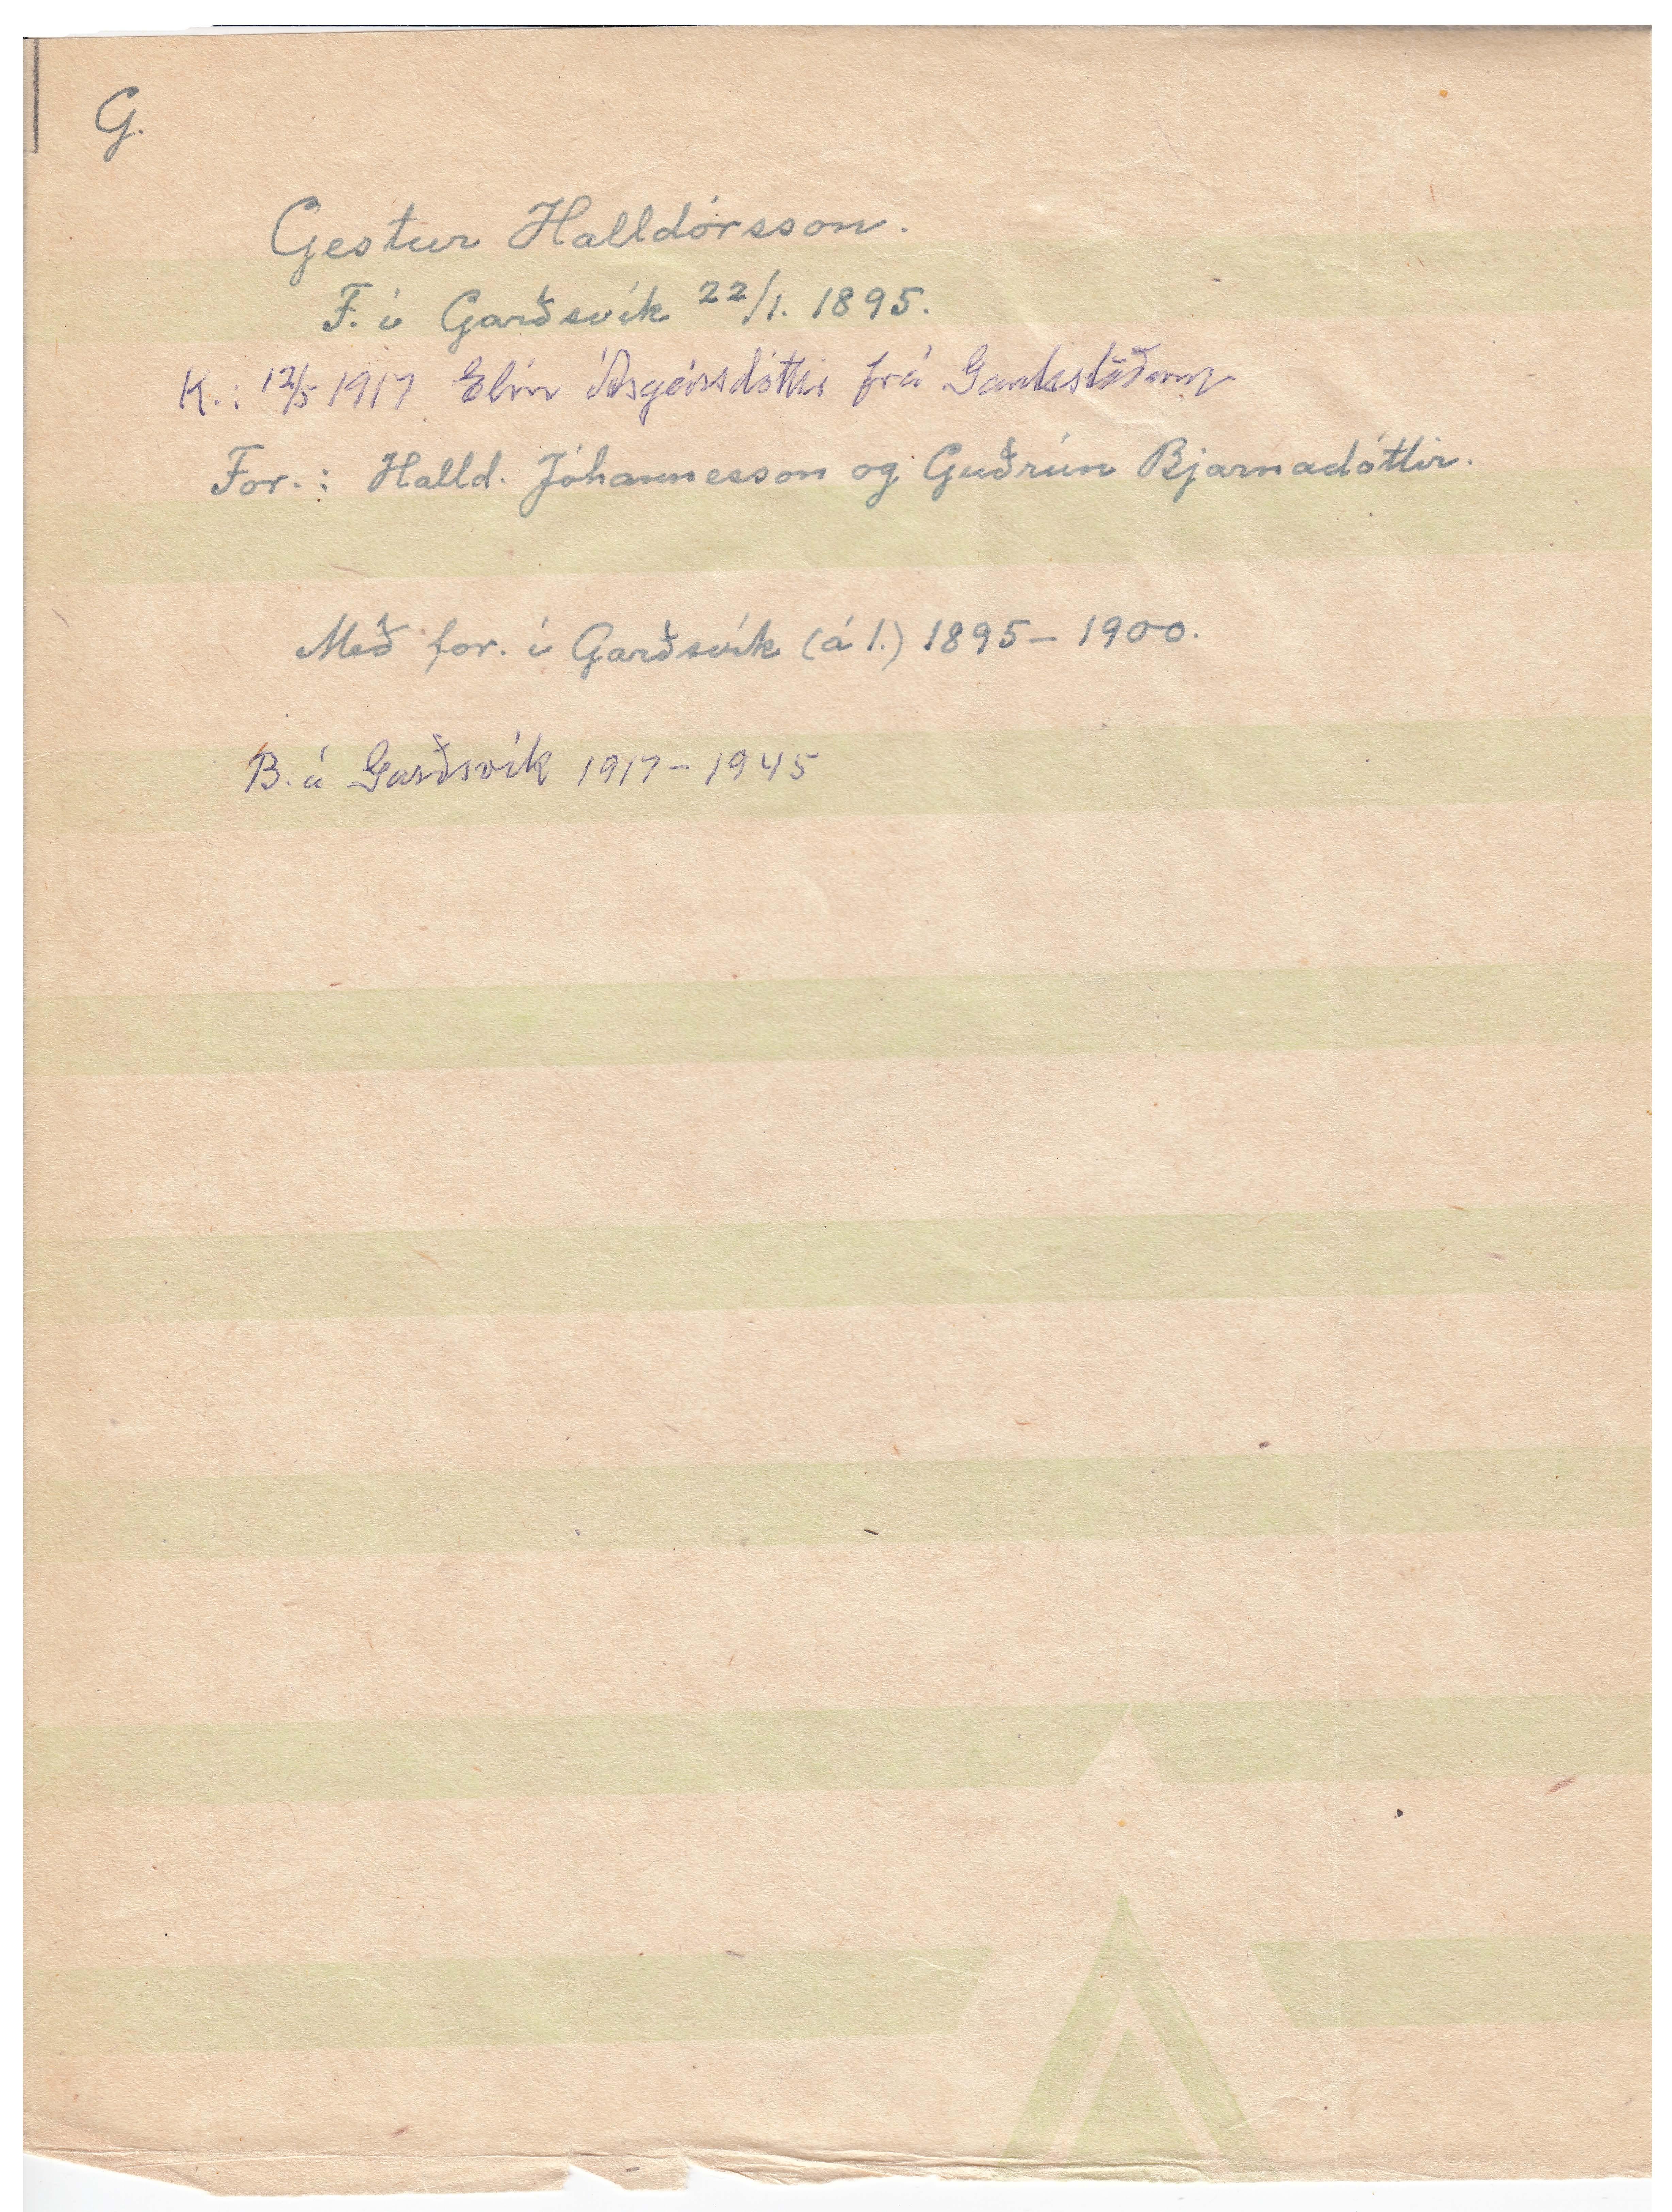 G.
Gestur Halldórsson.
F. í Garðsvík 22/1. 1895.
K.: 12/5 1917 Elín Ásgeirsdóttir frá Gautsstöðum
For.: Halld. Jóhannesson og Guðrún Bjarnadóttir.
Með for. í Garðsvík (á 1.) 1895 – 1900.
B. á Garðsvík 1917 – 1945